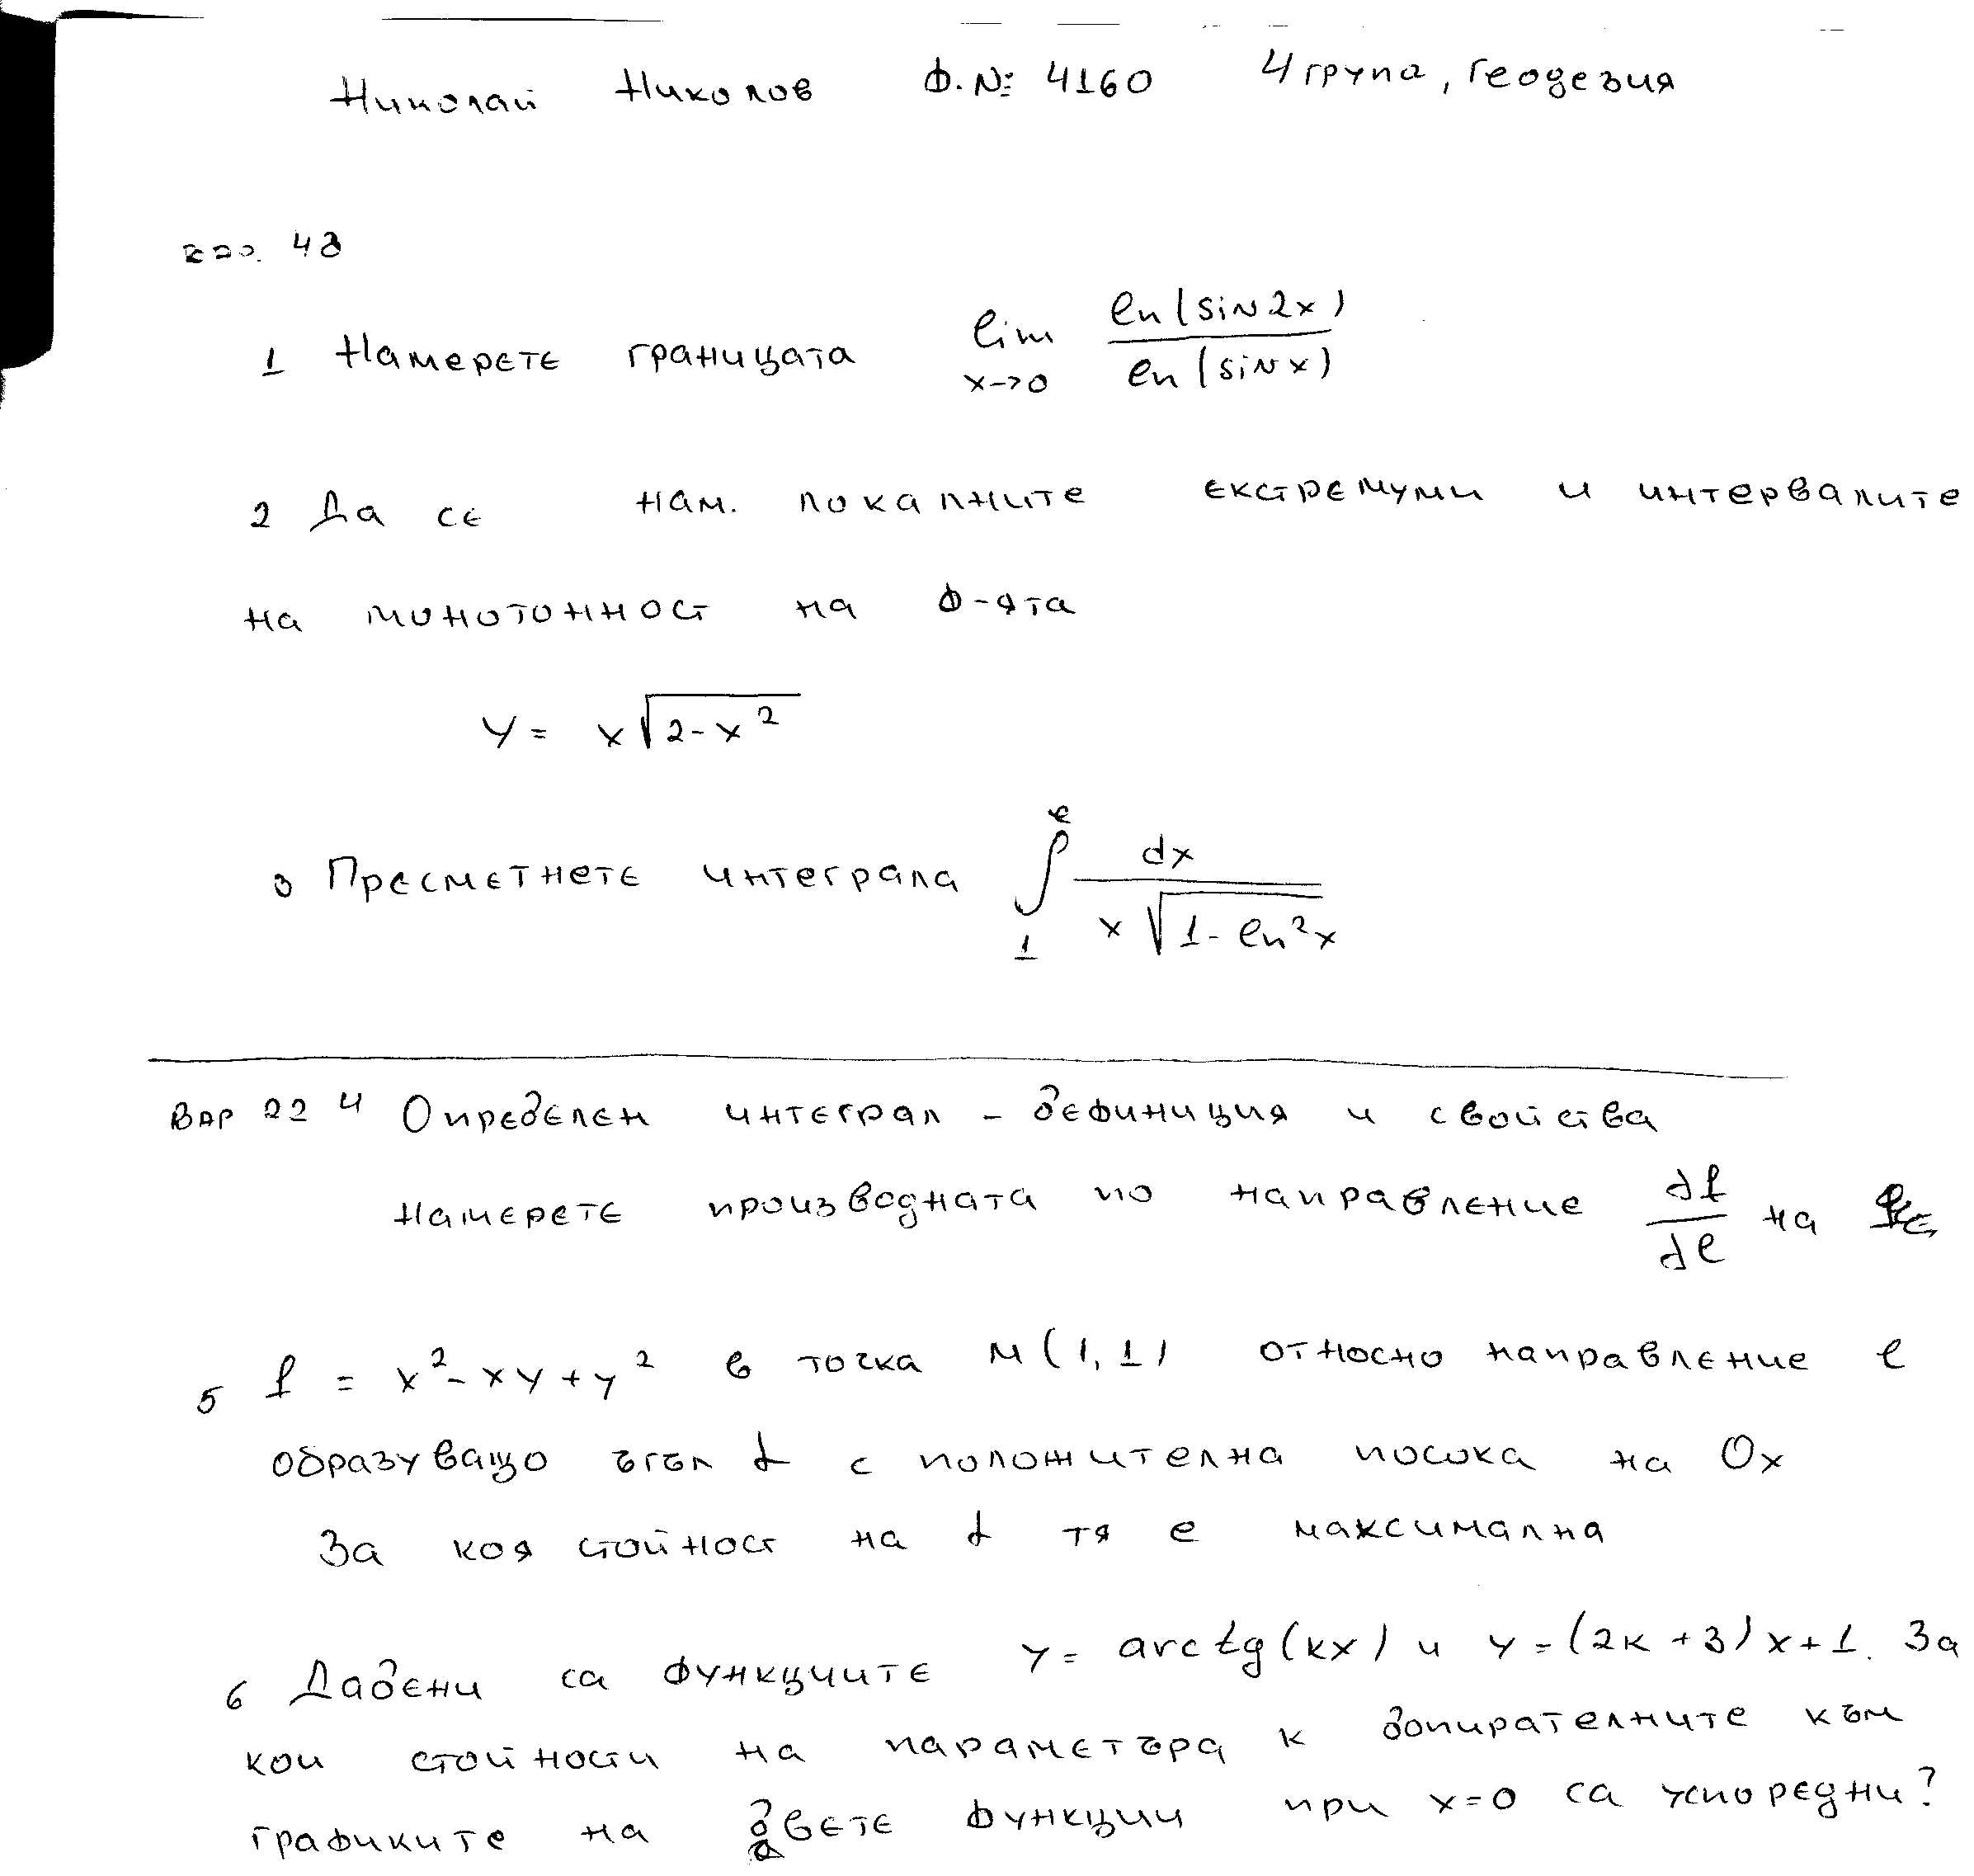 Николай Николов Ф.№: 4160 4 група, Геодезия
48
1 Намерете границата lim x->0 ln(sin2x) / ln(sinx)
2 Да се нам. локалните екстремуми и интервалите
на монотонност на ф-ята
y = x√(2-x²)
3 Пресметнете интеграла ∫₁ᵉ dx / x√(1-ln²x)
Вар 22 4 Определен интеграл - дефиниция и свойства
Намерете производната по направление ∂f/∂l на
5 f = x² - xy + y² в точка M(1,1) относно направление l
образуващо ъгъл α с положителна посока на Ox
За коя стойност на α тя е максимална
6 Дадени са функциите y = arctg(kx) и y = (2k+3)x+1. За
кои стойности на параметъра k допирателните към
графиките на двете функции при x=0 са успоредни?